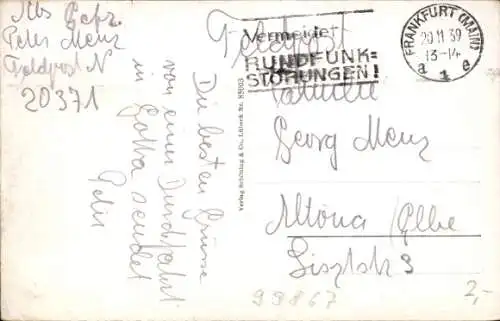 Abs. Gefr.
Peter Menz
Feldpost N
20371
Feldpost
Vermeidet
RUNDFUNK=
STÖRUNGEN!
FRANKFURT (MAIN)
20 11 39
13-14
a 1 e
Die besten Grüsse
von einer Durchfahrt
in Gotha sendet
Peter
Verlag Schöning & Co., Lübeck Nr. 85003
Familie
Georg Menz
Altona/Elbe
Lisztstr 3
99867
2,-